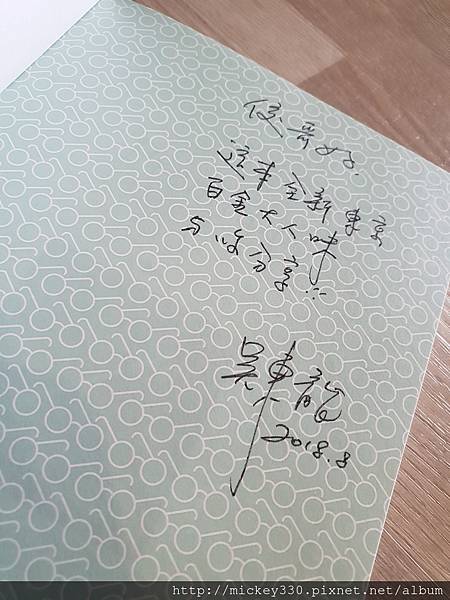 俊哥好.
這本全新東京
百金大人味
与你分享!!
吳東龍
2018.8
http://mickey330.pixnet.net/album